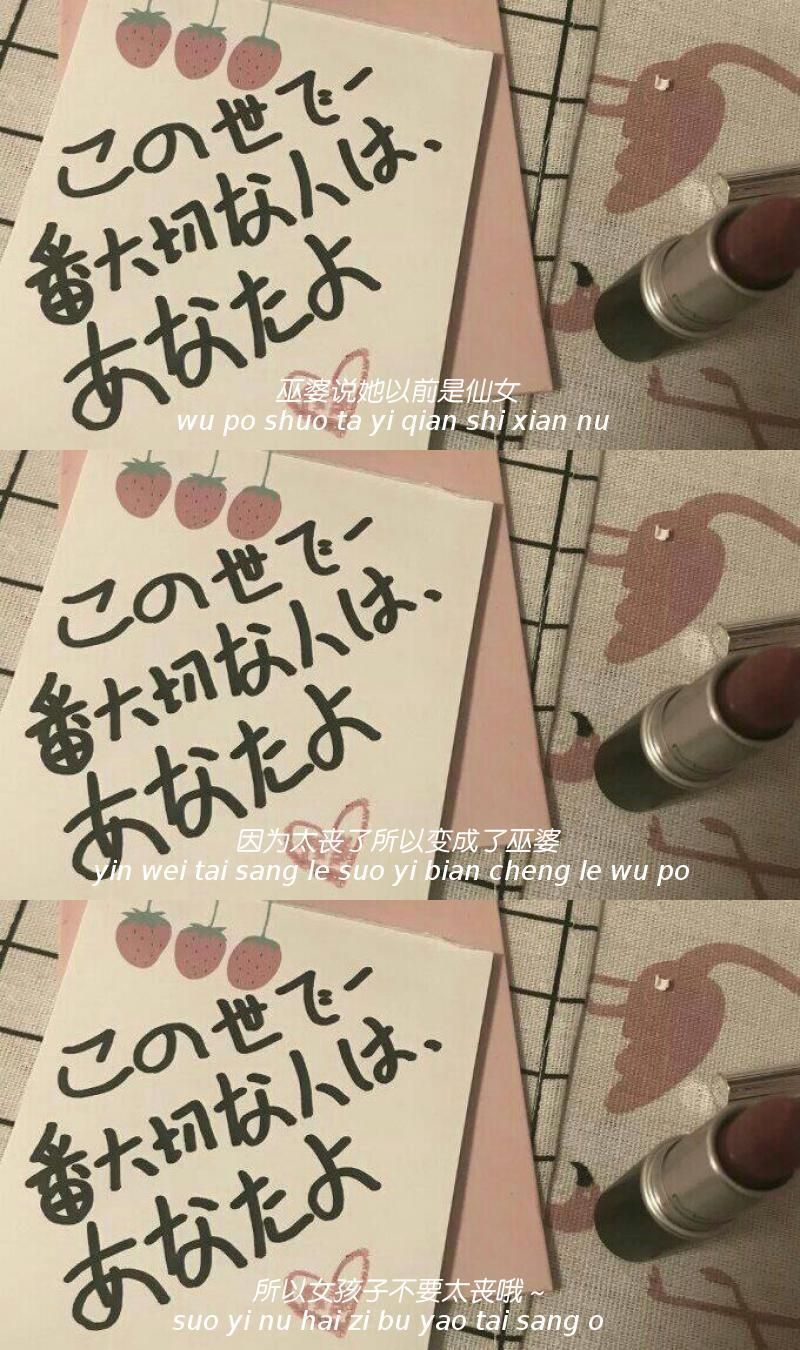 この世で一
番大切な人は、
あなたよ
巫婆说她以前是仙女
wu po shuo ta yi qian shi xian nu
この世で一
番大切な人は、
あなたよ
因为太丧了所以变成了巫婆
yin wei tai sang le suo yi bian cheng le wu po
この世で一
番大切な人は、
あなたよ
所以女孩子不要太丧哦~
suo yi nu hai zi bu yao tai sang o